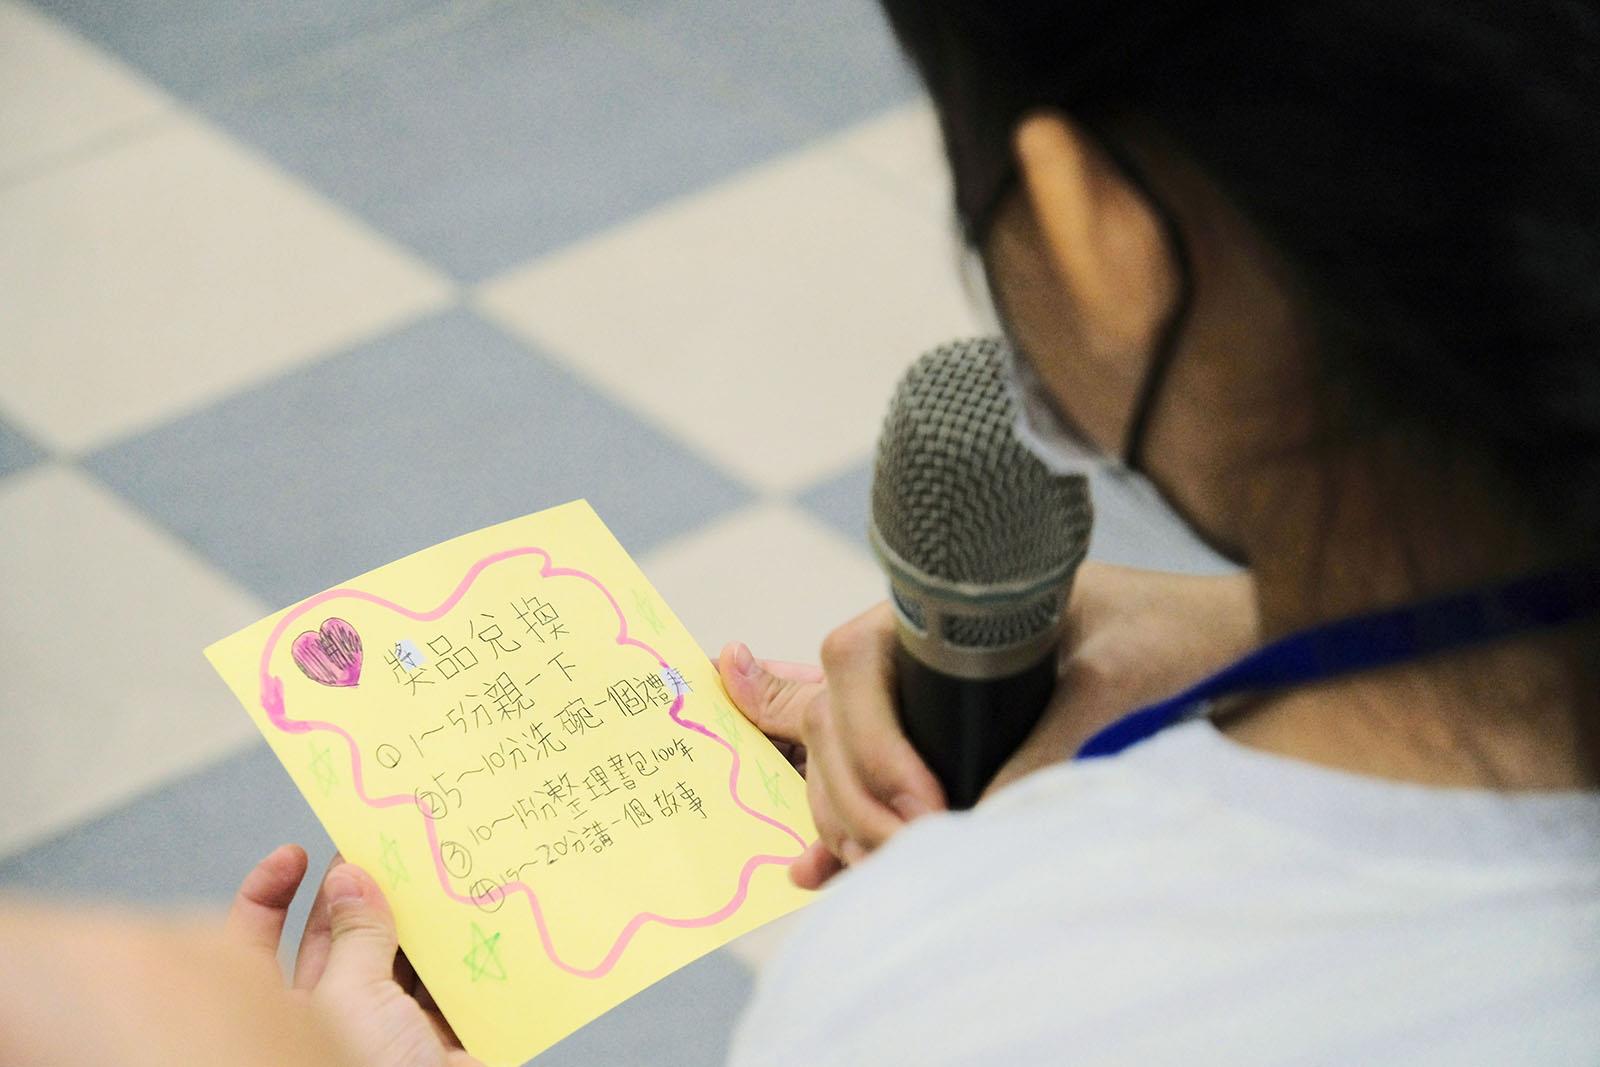 獎品兌換
① 1~5分親一下
② 5~10分洗碗一個禮拜
③ 10~15分整理書包100年
④ 15~20分講一個故事